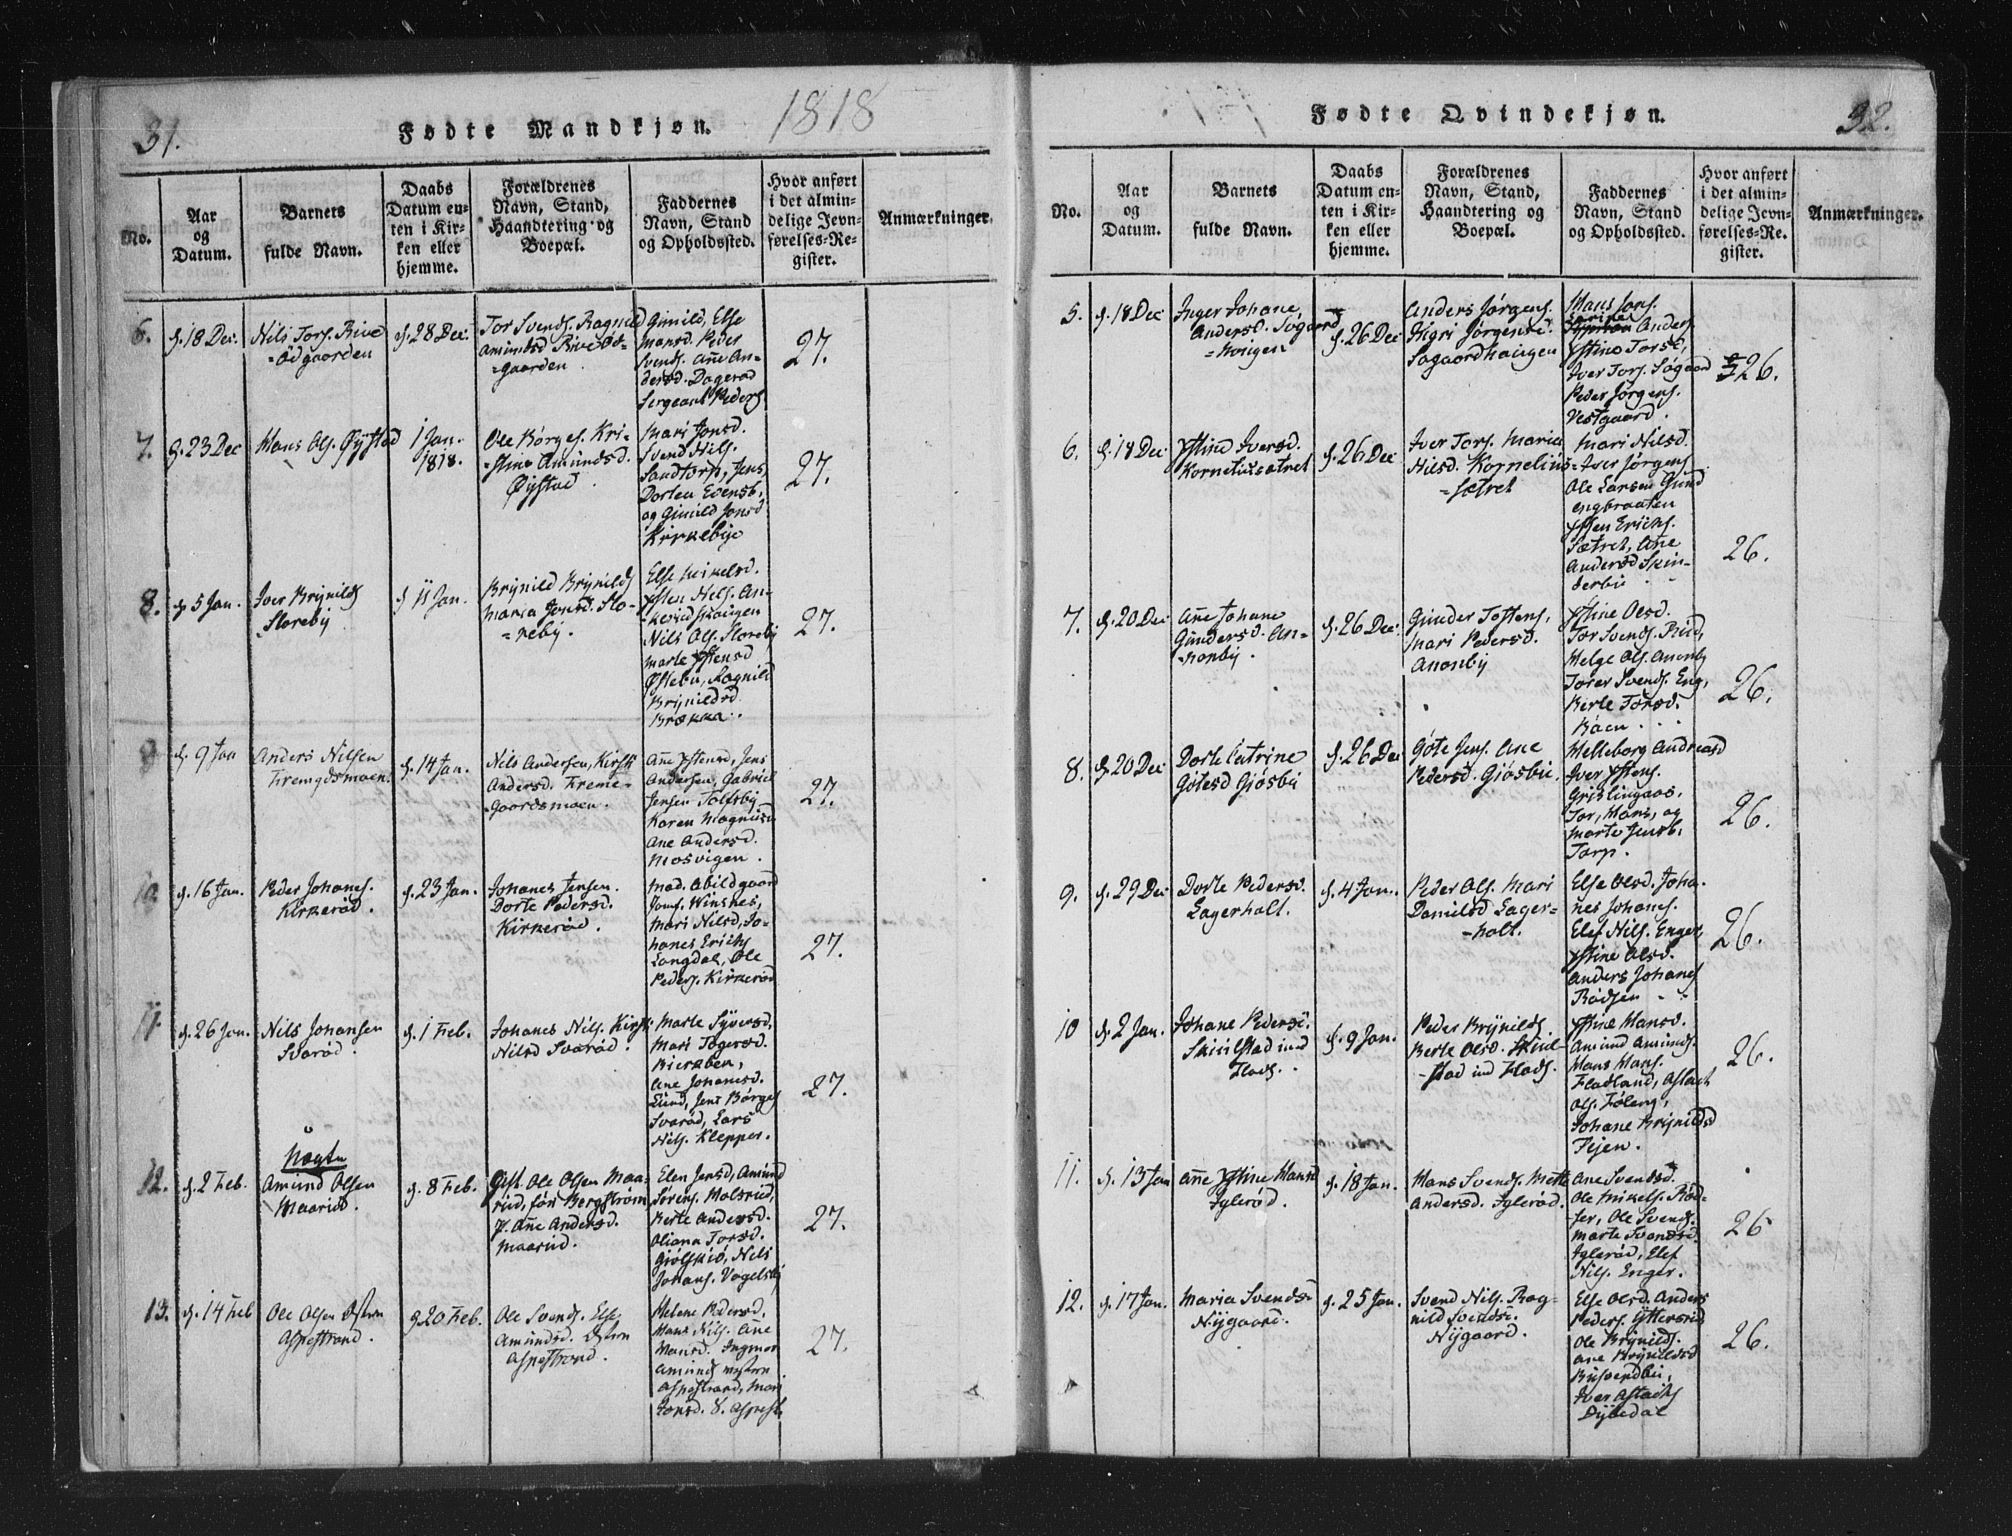 31.
Fødte Mandkjøn.
1818
No.
Aar
og
Datum.
Barnets
fulde Navn.
Daabs
Datum en-
ten i Kir-
ken eller
hjemme.
Forældrenes
Navn, Stand,
Haandtering og
Boepæl.
Faddernes
Navn, Stand
og Opholdssted.
Hvor anført
i det almin-
delige Jevn-
førelses-Re-
gister.
Anmærkninger.
6.
d. 18 Dec.
Nils Torf. Rive
=Ødgaarden
d. 28 Dec.
Tor Svends. Ragnild
Amundsd Rive Ød-
=gaarden
Gunild, Else
Hansd. Peder
Svends. Añe An-
dersd. Dagerød
Sergeant Peders
27.
7.
d. 23 Dec
Hans Ols. Øystad
1 Jan.
1818.
Ole Børges. Kri-
=stine Amundsd.
Øystad
Mari Jonsd.
Svend Nils.
Sandtorp, Jens
Dorten Evensb,
og Gunild Jonsd
Kirkebye
27.
8.
d. 5 Jan.
Iver Brynilds
Storeby
d 11 Jan.
Brynild Brynilds
Maria Jonsd. Sto-
=reby.
Else Mikelsd.
Ysten Nils. An-
Nils Ols. Storeby
Marte Ystensd
Østebu, Ragnild
Brynildsd
Brække.
27.
9
d. 9 Jan
Anders Nilsen
Fremgdsmoen.
d. 14 Jan.
Nils Andersen, Kirsti
Andersd. Freme-
=gaardsmoen.
Añe Ystensd, Jens
Andersen, Gabriel
Jensen Tolfsby
Karen Magnusd
Ane Andersd.
Mosvigen.
27.
10
d. 16 Jan.
Peder Johanes.
Kirkerød.
d. 23 Jan.
Johanes Jensen.
Dorte Pedersd.
Kirkerød.
Mad. Abildgaard
Jomf. Winsnes,
Mari Nilsd, Jo-
hanes Erichs
Langdal, Ole
Peders. Kirkerød
27.
11
d. 26 Jan.
Nils Johansen
Svarød.
d. 1 Feb.
Johanes Nils. Kirsti
Nilsd Svarød.
Marte Syversd,
Mari Togersd.
Ane Johanesd.
Lund, Jens Børges
Svarød, Lars
Nils. Klepper.
27.
12.
d. 2 Feb.
Uægte
Amund Olsen
Maarud.
d. 8 Feb.
Gift Ole Olsen Maa-
P. Añe Andersd.
Maarud.
Elen Jensd, Amund
Sørens. Holsrud,
Berte Andersd.
Oliana Torsd.
Giølskiø, Nils
Johans. Vogelsby
27.
13.
d. 14 Feb
Ole Olsen Østen
Aspestrand.
d 20 Feb.
Ole Svends. Else
Amundsd. Østen
Aspestrand.
Helene Pedersd.
Hans Nils. Añe
Hansd. Ingmor
Amunds vesten
Aspestrand, Mari
Jonsd. Ø. Aspest.
27.
Fødte Qvindekjøn.
32.
No.
Aar
og
Datum.
Barnets
fulde Navn.
Daabs
Datum en-
ten i Kir-
ken eller
hjemme.
Forældrenes
Navn, Stand,
Haandtering og
Boepæl.
Faddernes
Navn, Stand
og Opholdssted.
Hvor anført
i det almin-
delige Jevn-
førelses-Re-
gister.
Anmærkninger.
5.
d. 18 Dec
Inger Johane
Andersd. Søgaard
=houigen
d. 26 Dec
Anders Jørgens.
Ingri Jørgensd.
Søgaardhaugen
Hans Jons.
Anders
Ystine Torsd,
Iver Tors. Søgaard
Peder Jørgens.
Vestgaard.
26.
6.
d. 18 Dec
Ystine Iversd.
Korneliusætret
d. 26 Dec
Iver Tors. Maria
Nilsd. Kornelius=
=sætret
Mari Nilsd.
Iver Jørgens
Ole Larsen Gund
engbraaten
Ysten Erichs.
Sætret, Ane
Andersd Skin-
derbu
26.
7.
d. 20 Dec
Añe Johane
Gundersd. An-
=nonby.
d. 26 Dec
Gunder Tostens,
Mari Pedersd.
Anonby
Ystine Olsd.
Tor Svends. Rud,
Helge Ols. Anonby
Torer Svends. Eng,
Berte Torsd.
Böen
26.
8.
d. 20 Dec
Dorte Catrine
Götesd Giösbu
d. 26 Dec
Göte Jens. Ane
Pedersd. Giösbu.
Helleborg Andreasd
Iver Ystens.
Grislingaas.
Tor, Hans, og
Marte Jensb.
Torp.
26.
9.
d. 29 Dec
Dorte Pedersd.
Lagerholt.
d. 4 Jan.
Peder Ols. Mari
Danielsd Lager-
=holt.
Else Olsd. Joha-
nes Johanes.
Elef Nils. Enger,
Ystine Olsd.
Anders Johanes
Rödsen
26.
10
d. 2 Jan.
Johane Pedersd.
Skiilstad ind
Flads.
d. 9 Jan.
Peder Brynilds.
Berte Olsd. Skiil-
=stad ind Flads.
Ystine Hansd.
Amund Amunds.
Hans Hans.
Fladland, Aslach
Ols. Föleng,
Johane Brynildsd
Fejen.
26.
11.
d. 13 Jan
Añe Ystine Hansd
Iglerød.
d. 18 Jan.
Hans Svends. Mette
Andersd. Iglerød.
Ane Svendsd.
Ole Mikels. Röd-
ser, Ole Svends.
Marte Svendsd.
Iglerød, Elef
Nils. Enger.
26
12.
d. 17 Jan.
Maria Svendsd
Nygaard.
d. 25 Jan.
Svend Nils. Rag-
nild Svendsd.
Nygaard.
Else Olsd. Anders
Peders. Ytterøed
Ole Brynilds.
Ane Brynildsd
Busvendbu,
Iver Aslachs
Dybedal
26.